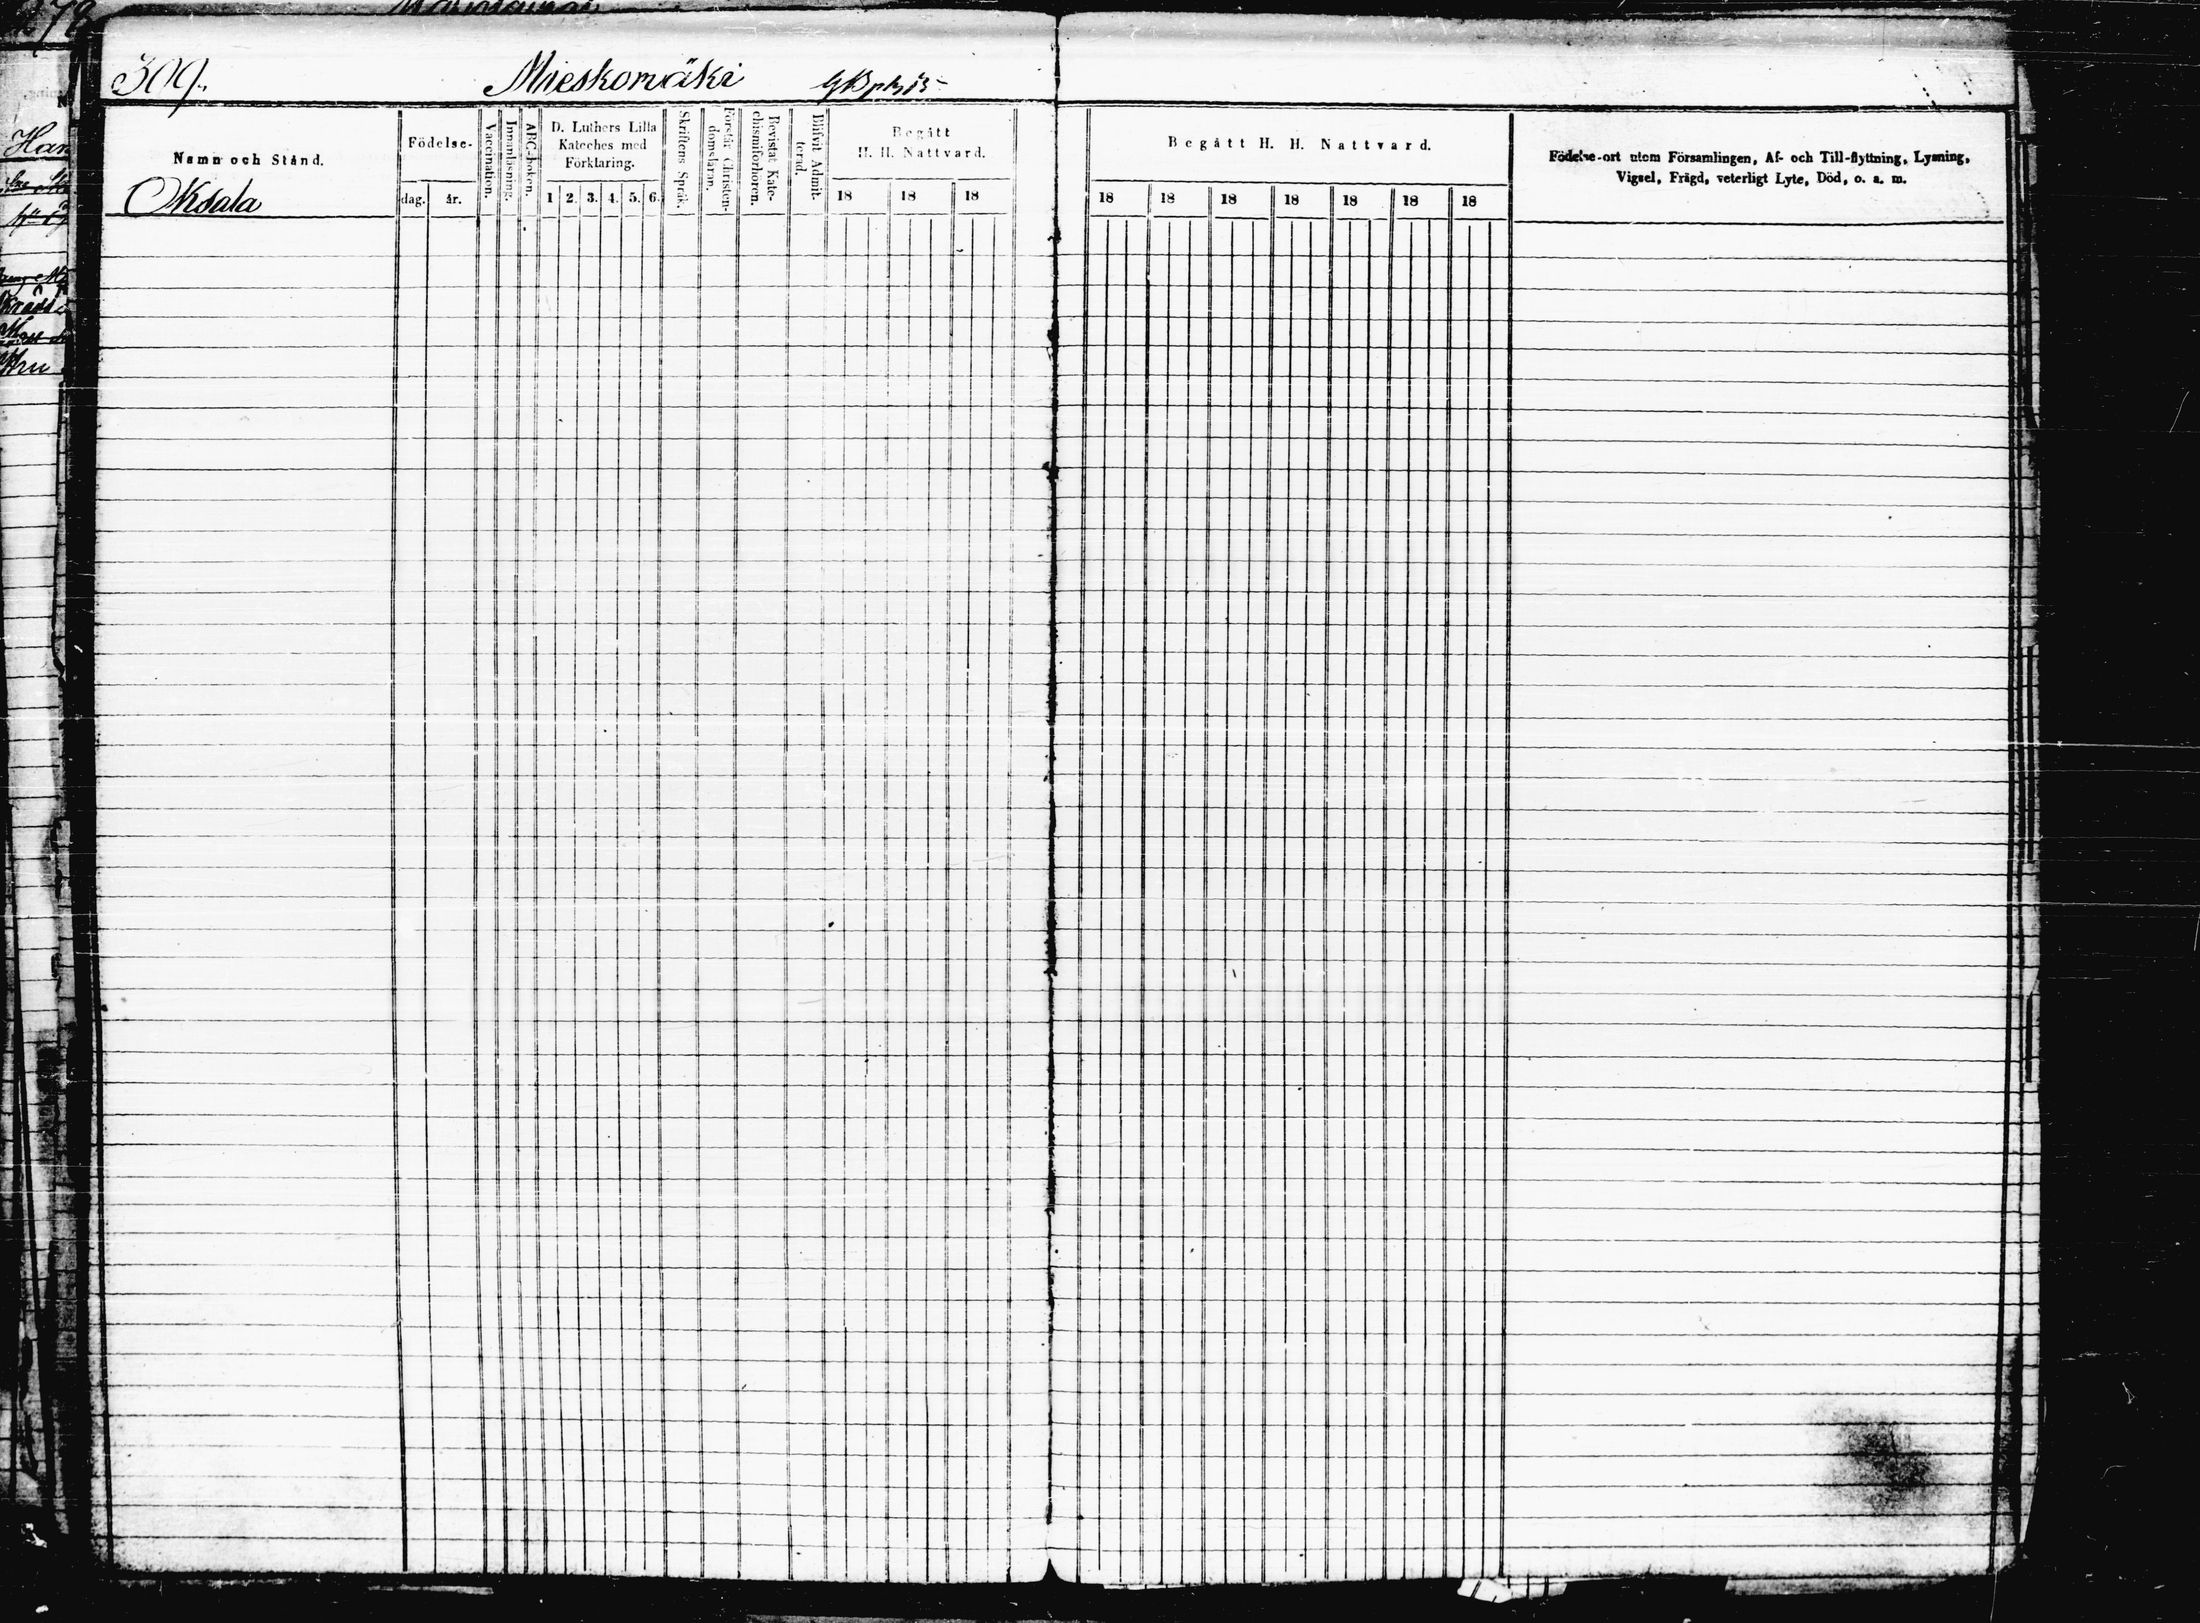 309.
Mieskomäki
Namn och Stånd.
Oksala
Födelse-
dag. år.
Vaccination.
Innanläsning.
ABC-boken.
D. Luthers Lilla
Kateches med
Förklaring.
1 2. 3. 4. 5. 6.
Skriftens Språk.
Förstår Christen-
domsläran.
Bevistat Kate-
chismiförhören.
Blifvit Admit-
terad.
Begått
H. H. Nattvard.
18 18 18
Begått H. H. Nattvard.
18 18 18 18 18 18 18
Födelse-ort utom Församlingen, Af- och Till-flyttning, Lysning,
Vigsel, Frägd, veterligt Lyte, Död, o. s. m.